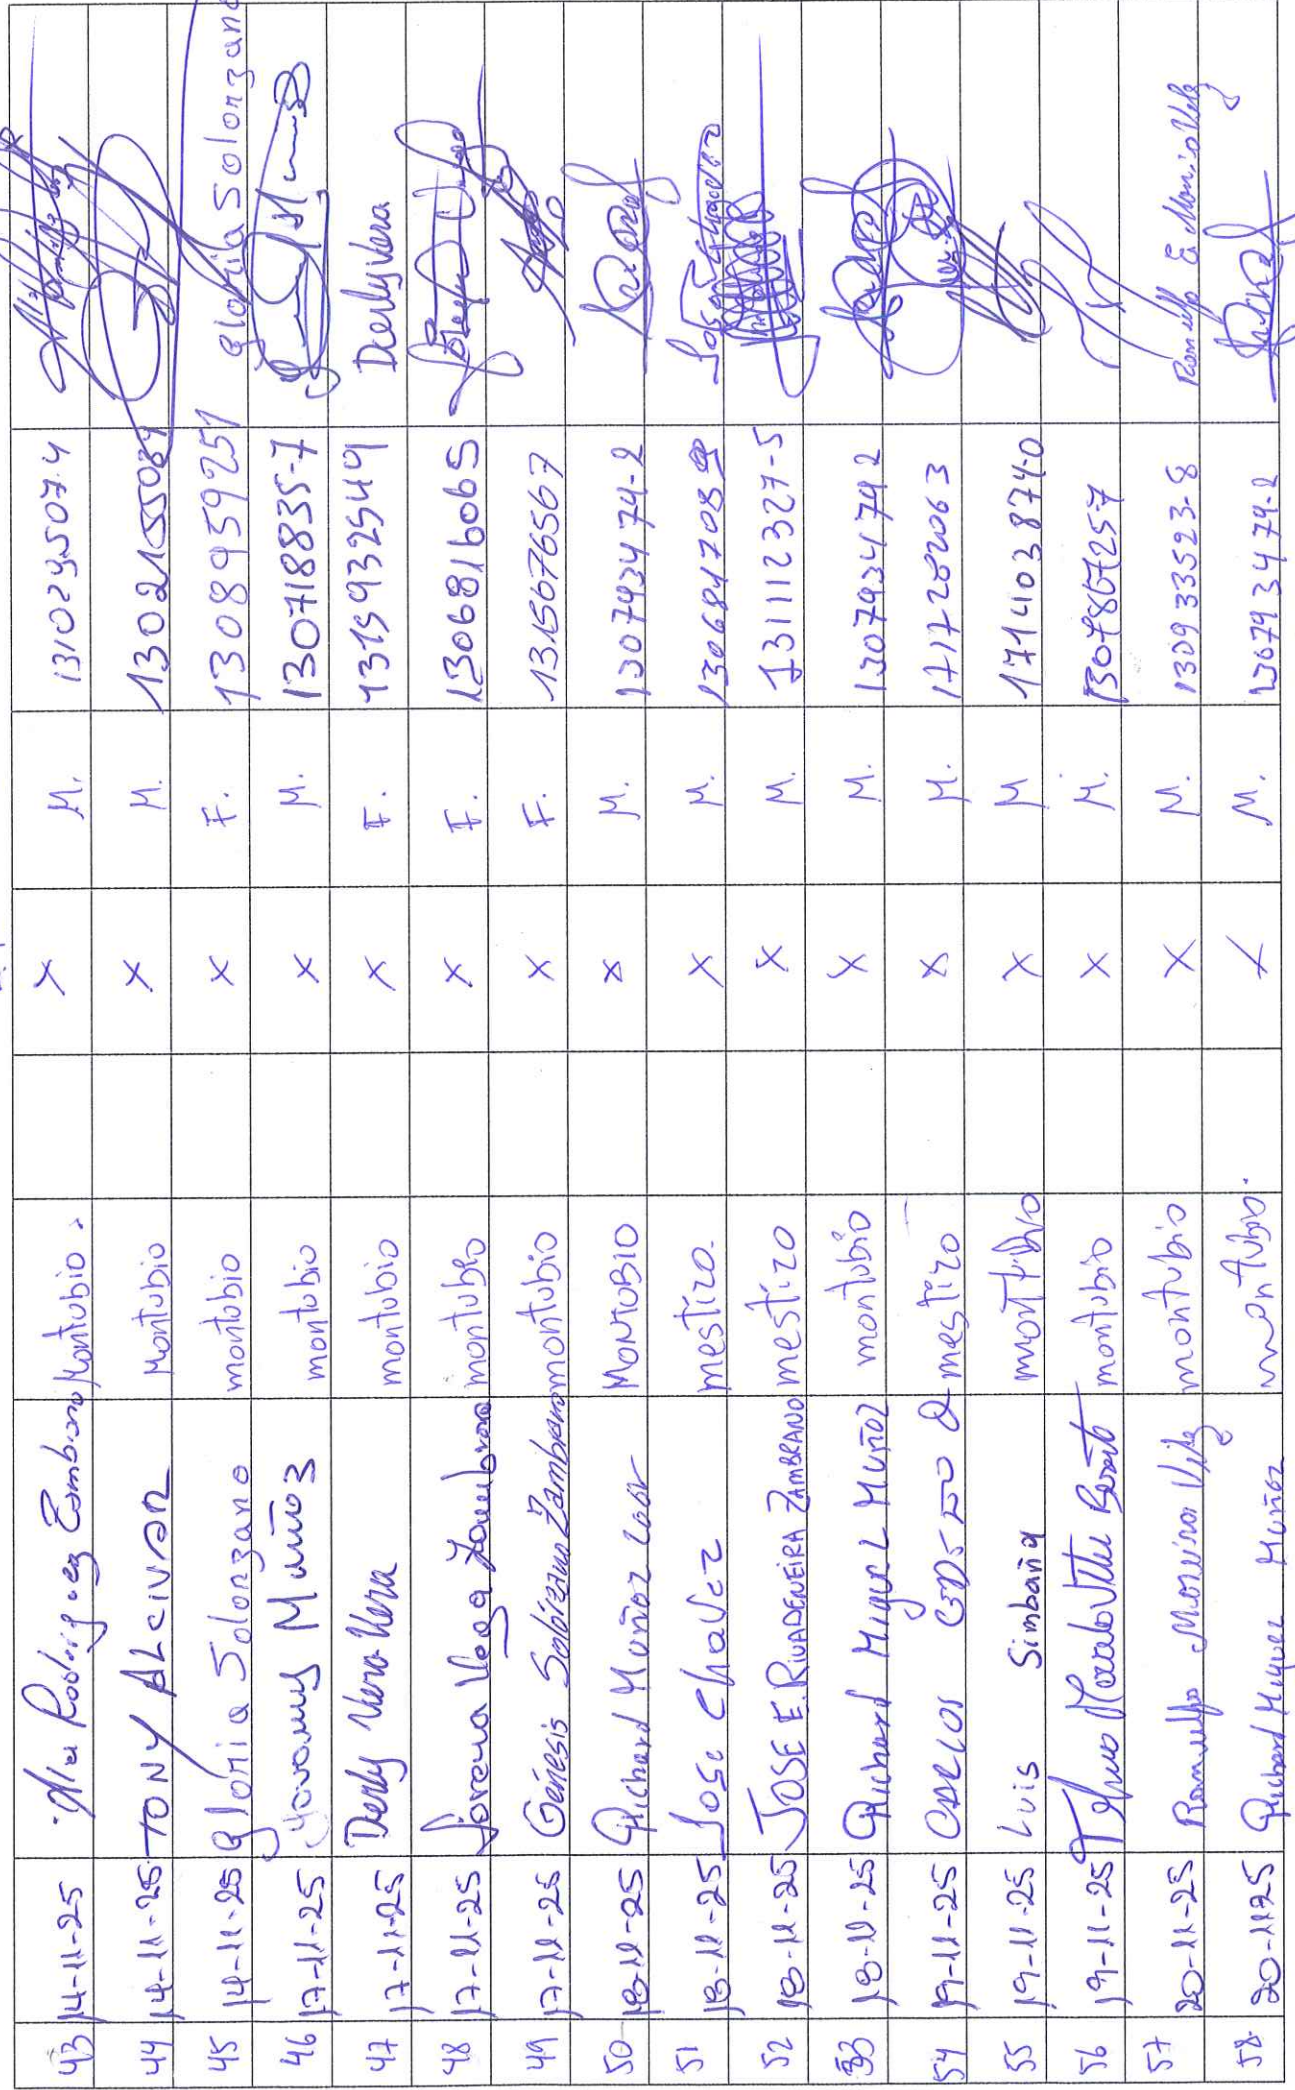 43 14-11-25 Rodriguez Zambrano Montubio. X M. 131024507-4
44 14-11-25 TONY ALCIVAR Montubio X M. 1302155084
45 14-11-25 gloria Solorzano montubio X F. 1308959251 gloria Solorzano
46 17-11-25 Muñoz montubio X M. 130718835-7
47 17-11-25 Derly Vera Vera montubio X F. 1315932549 Derly Vera
48 17-11-25 Lorena Vega Zambrano montubio X F. 1306816065
49 17-11-25 Génesis Solórzano Zambrano montubio X F. 1315676567
50 18-11-25 Richard Muñoz Loor MONTUBIO X M. 130793474-2
51 18-11-25 Jose Chavez mestizo. X M.
52 18-11-25 JOSE E. RIVADENEIRA ZAMBRANO mestizo X M. 131112327-5
53 18-11-25 Richard Miguel Muñoz montubio X M. 1307934742
54 19-11-25 CARLOS mestizo X M. 1717282063
55 19-11-25 Luis Simbaña montubio X M 171403874-0
56 19-11-25 montubio X M. 130786725-7
57 20-11-25 Romulfo Moreira Vélez montubio X M. 130933523-8
58 20-11-25 Richard Miguel Muñoz montubio. X M. 130793474-2